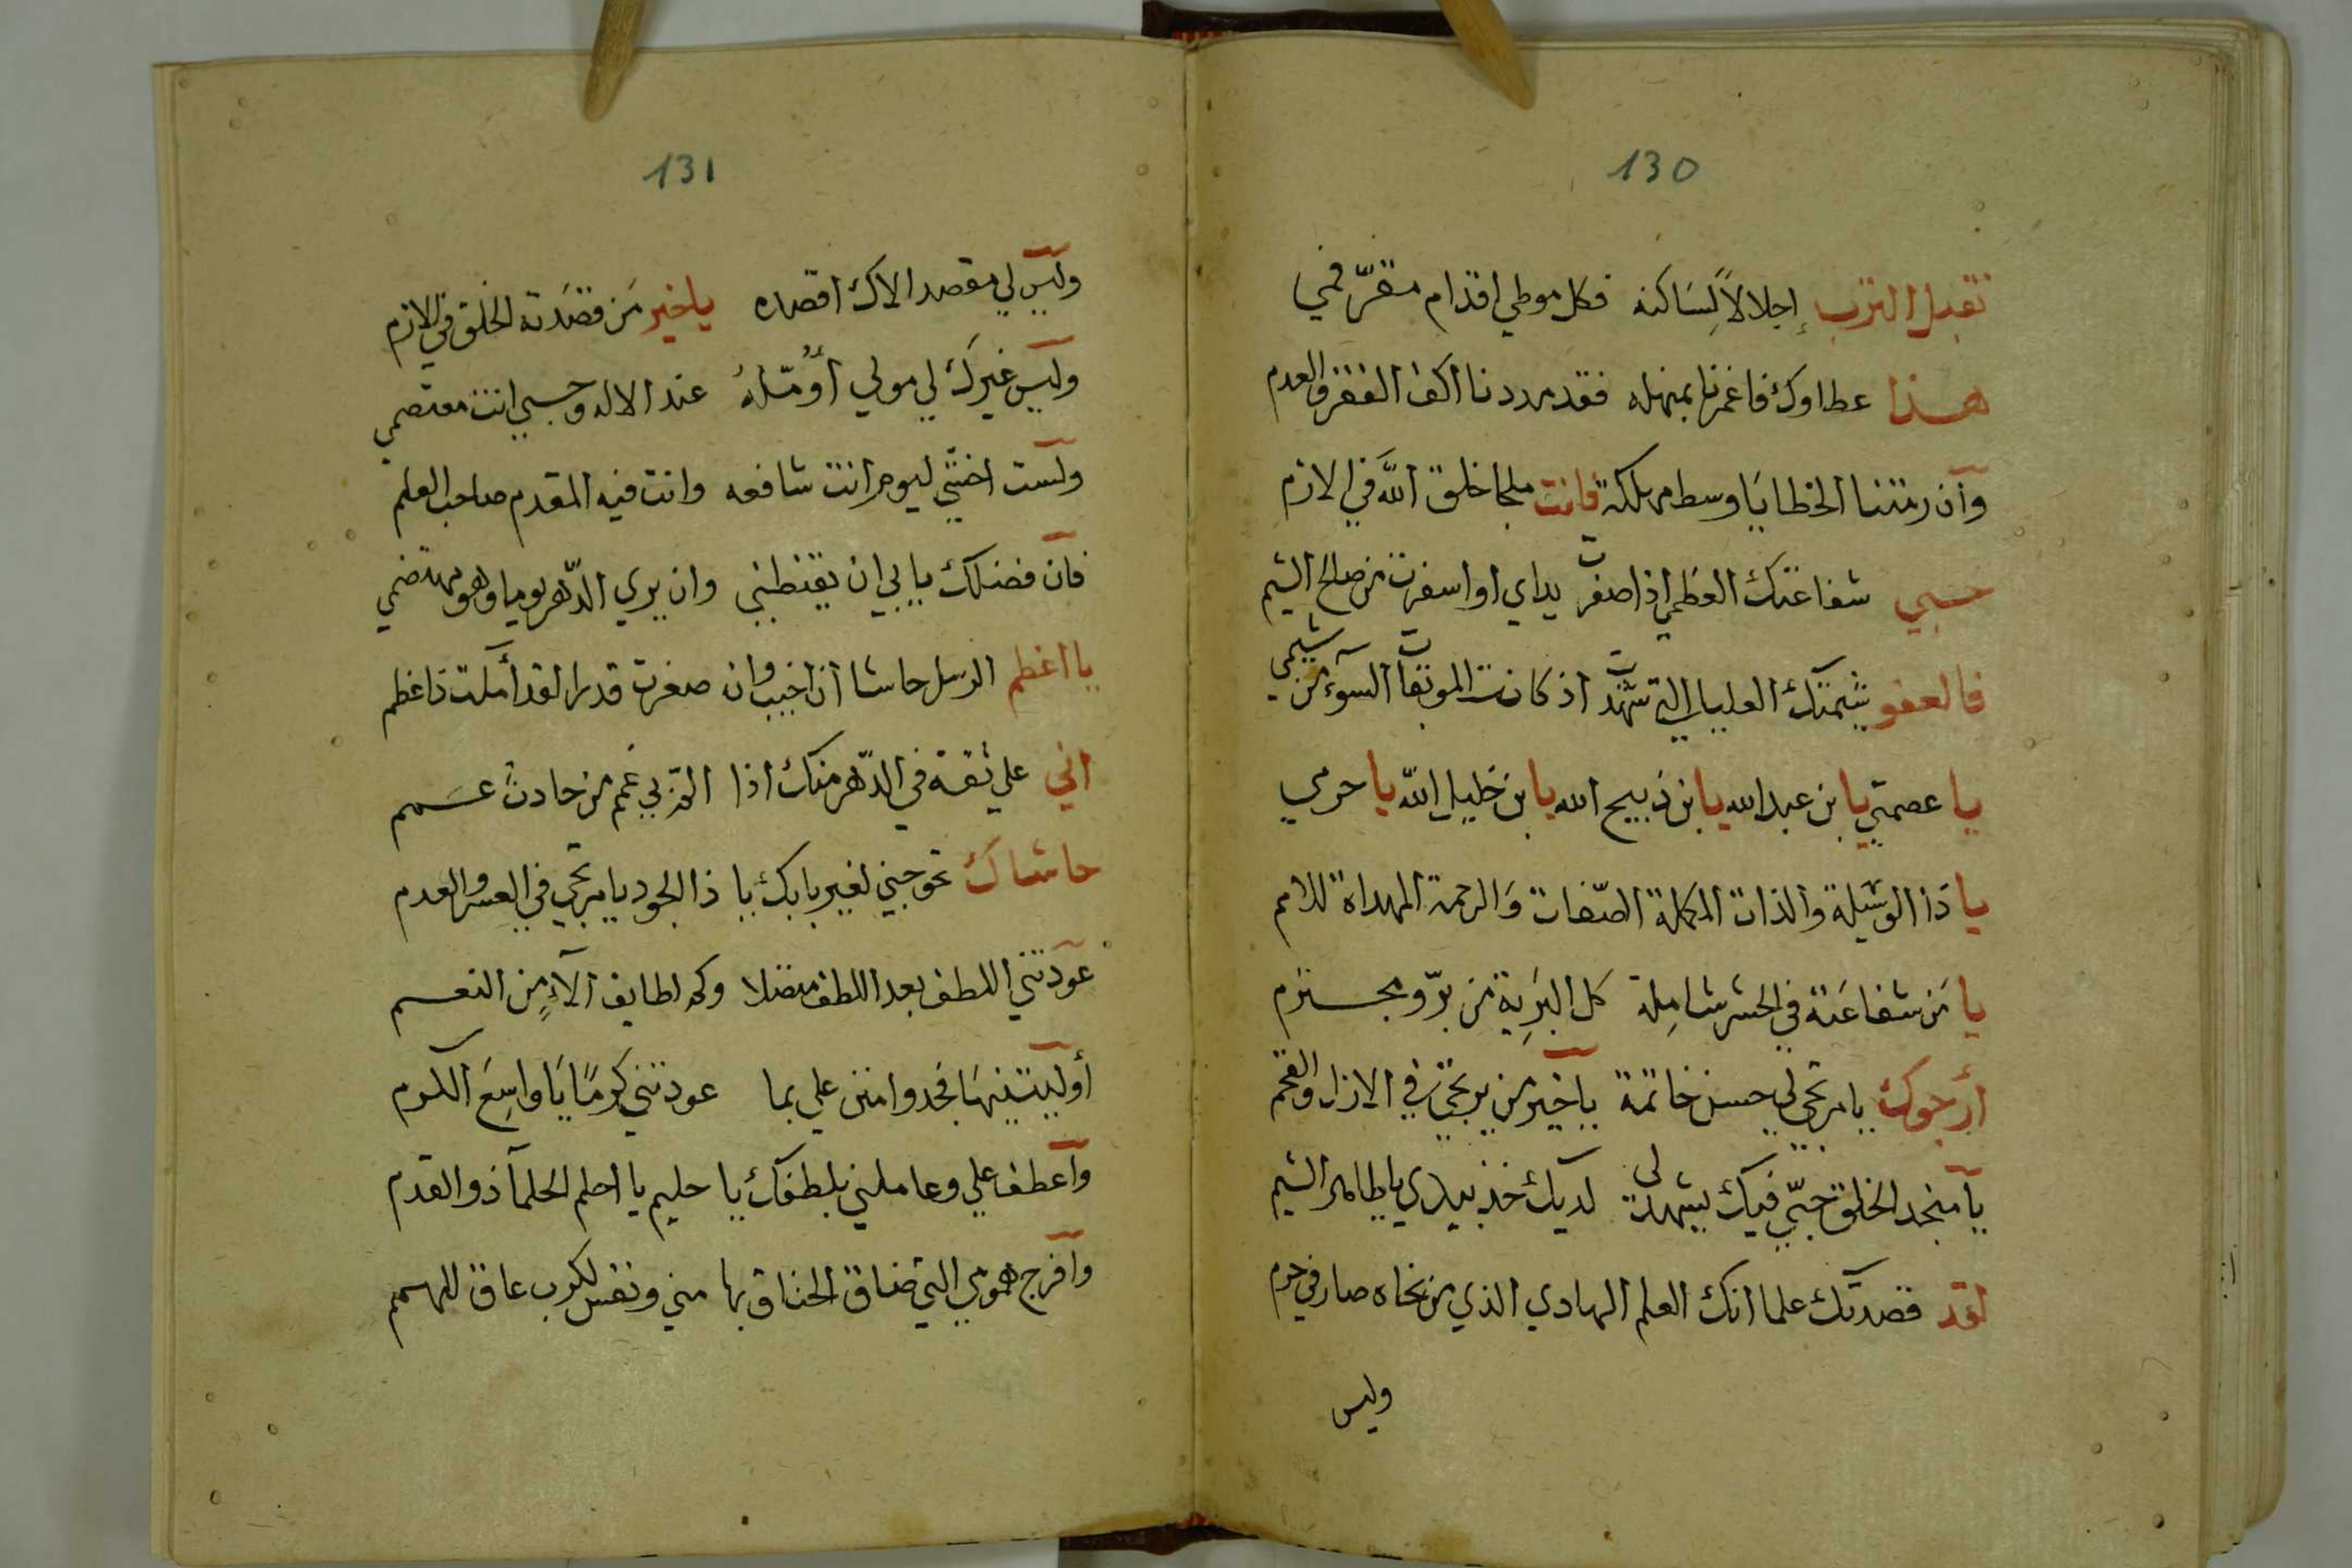 130
نقبل الترب إجلالاً لِسَاكنه فكل موطي اقدام مقرّ فمي
هذا عطاوك فاغمرنا بمنهله فقد مددنا اكف الفقر والعدم
وان رمتنا الخطايَا وسط مهلكة فانت ملجا خلق اللّه في الازم
حسبي شفاعتك العظمي اذا صفرت يداي او اسفرت من صالح الشيم
فالعفو شيمتك العليا التي شهدت اذ كانت الموبقات السوء من شيمي
يا عصمتي يا بن عبد الله يا بن ذبيح الله يا بن خليل اللّه يا حرمي
يا ذَا الوسَيلة والذات المكملة الصّفات وَالرحمة المهداة للامم
يا مَن شفاعَته في الحشر شامِلة كل البَرِية من برّ ومجسترم
أرجوك يا مرتجي لي حسن خاتمة يا خير من يرتجي في الازل والقحم
يا منجد الخلق حبّي فيك يشهد لى لديك خذ بيدي يا طاهر الشيم
لقد قصدتك علما انك العلم الهادي الذي من نحاه صار في حرم
وليس
131
وليس لي مقصد الاك اقصده ياخير مَن قصَدَته الخلق في الازم
وليس غيرك لي مولي أوُمّلهُ عند الاله وحسبي انت معتصمي
ولست اخشي ليوم انت شافعه وانت فيه المقدم صاحب العلم
فان فضلك يابي ان يقنطني وان يري الدّهر يوما وهو مهتضمي
يا اعظم الرسل حاشا ان اخيب وان صغرت قدرا لقد أملت ذا عظم
اني علي ثقة في الدّهر منك اذا التز بي غمم من حادث عسمم
حاشاك تحوجني لغير بابك يا ذا الجود يا مرتجي في العسر والعدم
عودتني اللطف بعد اللطف متصلا وكم لطايف آلآءٍ مِن النعسم
أوليتنيهَا فجد وامنن علي بما عودتني كرمًا يَا واسِعَ الكرم
واعطف علي وعاملني بلطفك يا حليم يا احلم الحلمآ ذو القدم
وافرج همومي التي ضاق الخناق بها مني ونفس لكرب عاق للهسمم